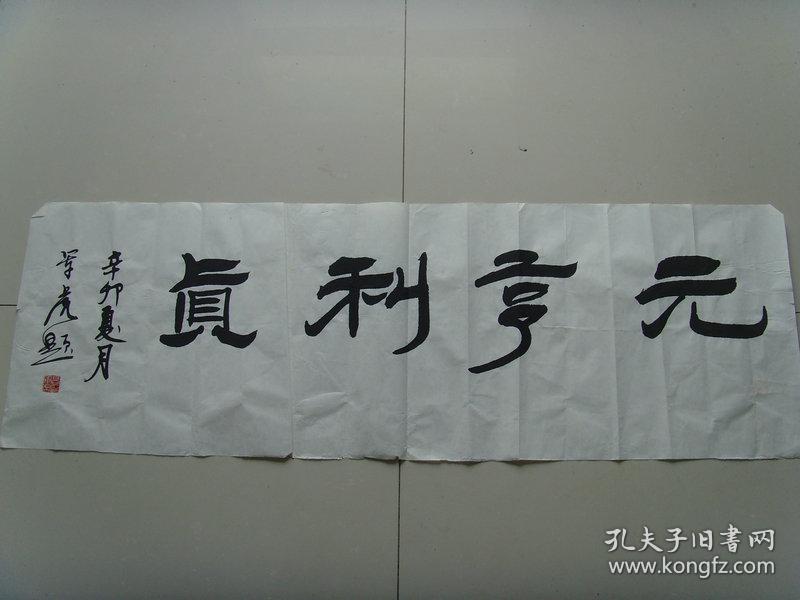 元亨利貞
辛卯夏月
題
孔夫子旧書网
www.kongfz.com